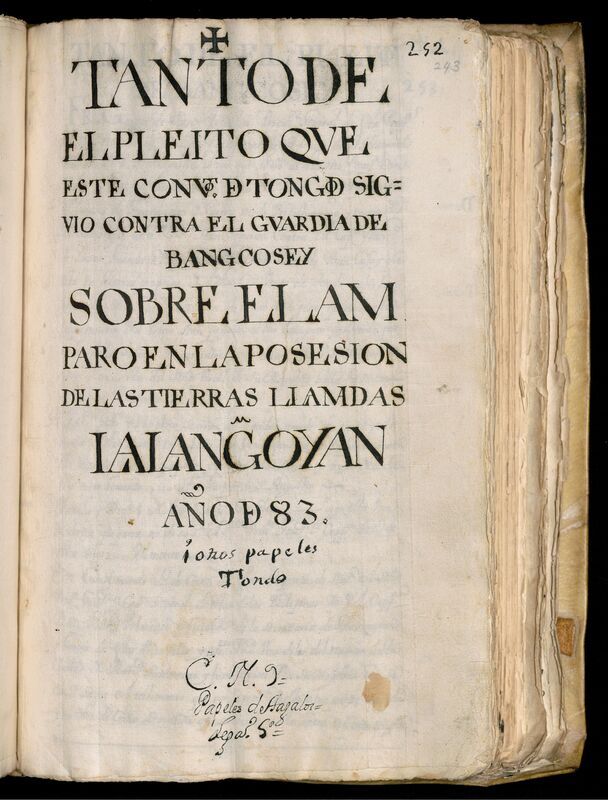 252
293
TANTO DE
EL PLEITO QVE
ESTE CONVo. Đ TONGĐO SIG=
VIO CONTRA EL GVARDIA DE
BANGCOSEY
SOBRE EL AM
PARO EN LA POSESION
DE LAS TIERRAS LLAMDAS
IAIANG̃OYAN
AÑO Đ 83.
i otros papeles
Tondo
C. N. 9=
Papeles d
Legao. 5o=